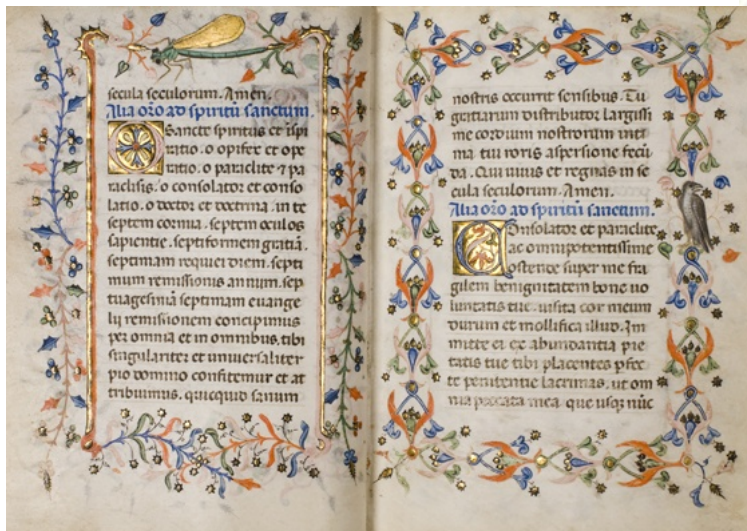 secula seculorum. Amen.
Alia orō ad spiritū sanctum.
O Sancte spiritus et īspi
ratio. o opifex et ope
ratio. o paraclite ⁊ pa
raclisis. o consolator et conso
latio. o doctor et doctrina. in te
septem cornua. septem oculos
sapientie. septiformem gratiā.
septimam requiei diem. septi
mum remissionis annum. sep
tuagesimā septimam euange
lii remissionem concipimus
per omnia et in omnibus. tibi
singulariter et uniuersaliter
pio domino confitemur et at
tribuimus. quicquid sanum
nostris occurrit sensibus. Tu
gratiarum distributor largissi
me cordium nostrorum inti
ma tui roris aspersione fecū
da. Qui uiuis et regnas in se
cula seculorum. Amen.
Alia orō ad spiritū sanctum.
Consolator et paraclite
ac omnipotentissime
ostende super me fra
gilem benignitatem bone uo
luntatis tue. uisita cor meum
durum et mollifica illud. Im
mitte ei ex abundantia pie
tatis tue tibi placentes pfec
te penitentie lacrimas. ut om
nia peccata mea. que usqꝫ nūc